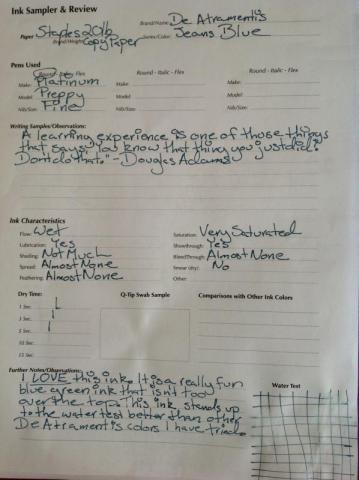 Ink Sampler & Review
Brand/Name: De Atramentis
Paper Staples 20lb
Brand/Weight: Copy Paper Series/Color: Jeans Blue
Pens Used
Round - Italic - Flex Round - Italic - Flex Round - Italic - Flex
Make: Platinum Make: Make:
Model Preppy Model Model
Nib/Size: Fine Nib/Size: Nib/Size:
Writing Samples/Observations:
"A learning experience is one of those things
that says, 'You know that thing you just did?
Don't do that.'" - Douglas Adams
Ink Characteristics
Flow: Wet Saturation: Very Saturated
Lubrication: Yes Showthrough: Yes
Shading: Not Much BleedThrough: Almost None
Spread: Almost None Smear (dry): No
Feathering: Almost None Other:
Dry Time: Q-Tip Swab Sample Comparisons with Other Ink Colors
1 Sec.
3 Sec.
5 Sec.
10 Sec.
15 Sec.
Further Notes/Observations: Water Test
I LOVE this ink. It is a really fun
blue green ink that isn't too
over the top. This ink stands up
to the water test better than other
De Atramentis colors I have tried.